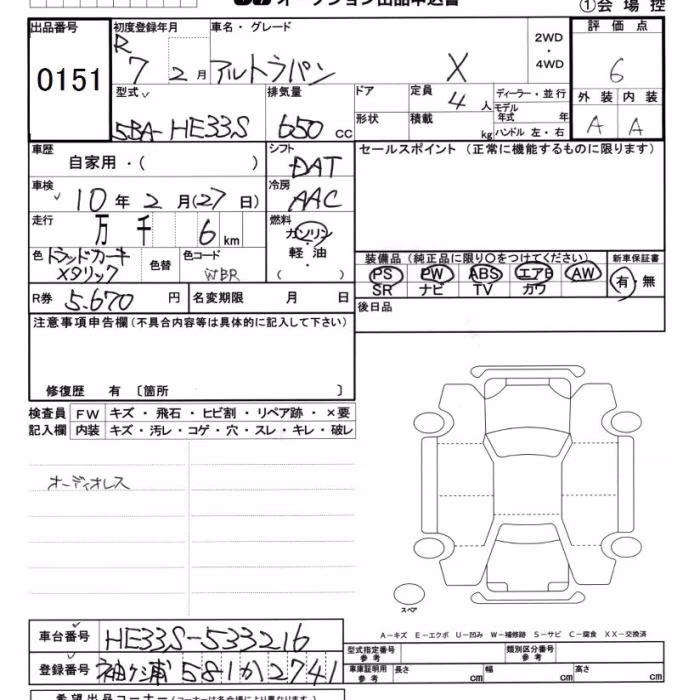 オークション出品申込書 ①会場控
出品番号 0151
初度登録年月 R7 2月
車名・グレード アルトラパン X
2WD・4WD
評価点 6
外装 A 内装 A
型式 5BA-HE33S
排気量 650 cc
ドア
形状
定員 4人
積載 kg
ディーラー・並行
モデル年式 年
ハンドル 左・右
車歴 自家用・( )
シフト DAT
セールスポイント(正常に機能するものに限ります)
車検 10年2月(27日)
冷房 AAC
走行 万 千 6 km
燃料 ガソリン・軽油 ( )
色 トラッドカーキメタリック
色替
色コード WBR
装備品(純正品に限り○をつけてください)
PS PW ABS エアB AW
SR ナビ TV カワ
新車保証書 有・無
R券 5.670 円
名変期限 月 日
後日品
注意事項申告欄(不具合内容等は具体的に記入して下さい)
修復歴 有 〔箇所 〕
検査員記入欄
FW キズ・飛石・ヒビ割・リペア跡・×要
内装 キズ・汚レ・コゲ・穴・スレ・キレ・破レ
オーディオレス
スペア
A-キズ E-エクボ U-凹み W-補修跡 S-サビ C-腐食 XX-交換済
車台番号 HE33S-533216
登録番号 袖ヶ浦 581 か 2741
型式指定番号 参考
類別区分番号 参考
車庫証明用 参考 長さ cm 幅 cm 高さ cm
希望出品コーナー(コーナーは各会場により異なります)